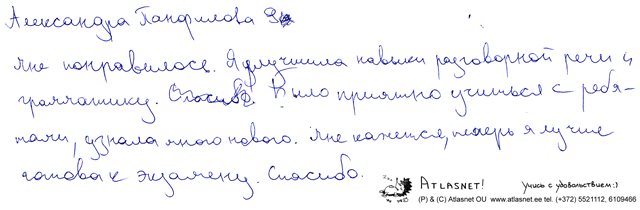 Александра Панфилова 9
Мне понравилось. Я улучшила навыки разговорной речи и
грамматику. Спасибо. Было приятно учиться с ребя-
тами, узнала много нового. Мне кажется, теперь я лучше
готова к экзамену. Спасибо.
ATLASNET! Учись с удовольствием:)
(P) & (C) Atlasnet OU www.atlasnet.ee tel. (+372) 5521112, 6109466